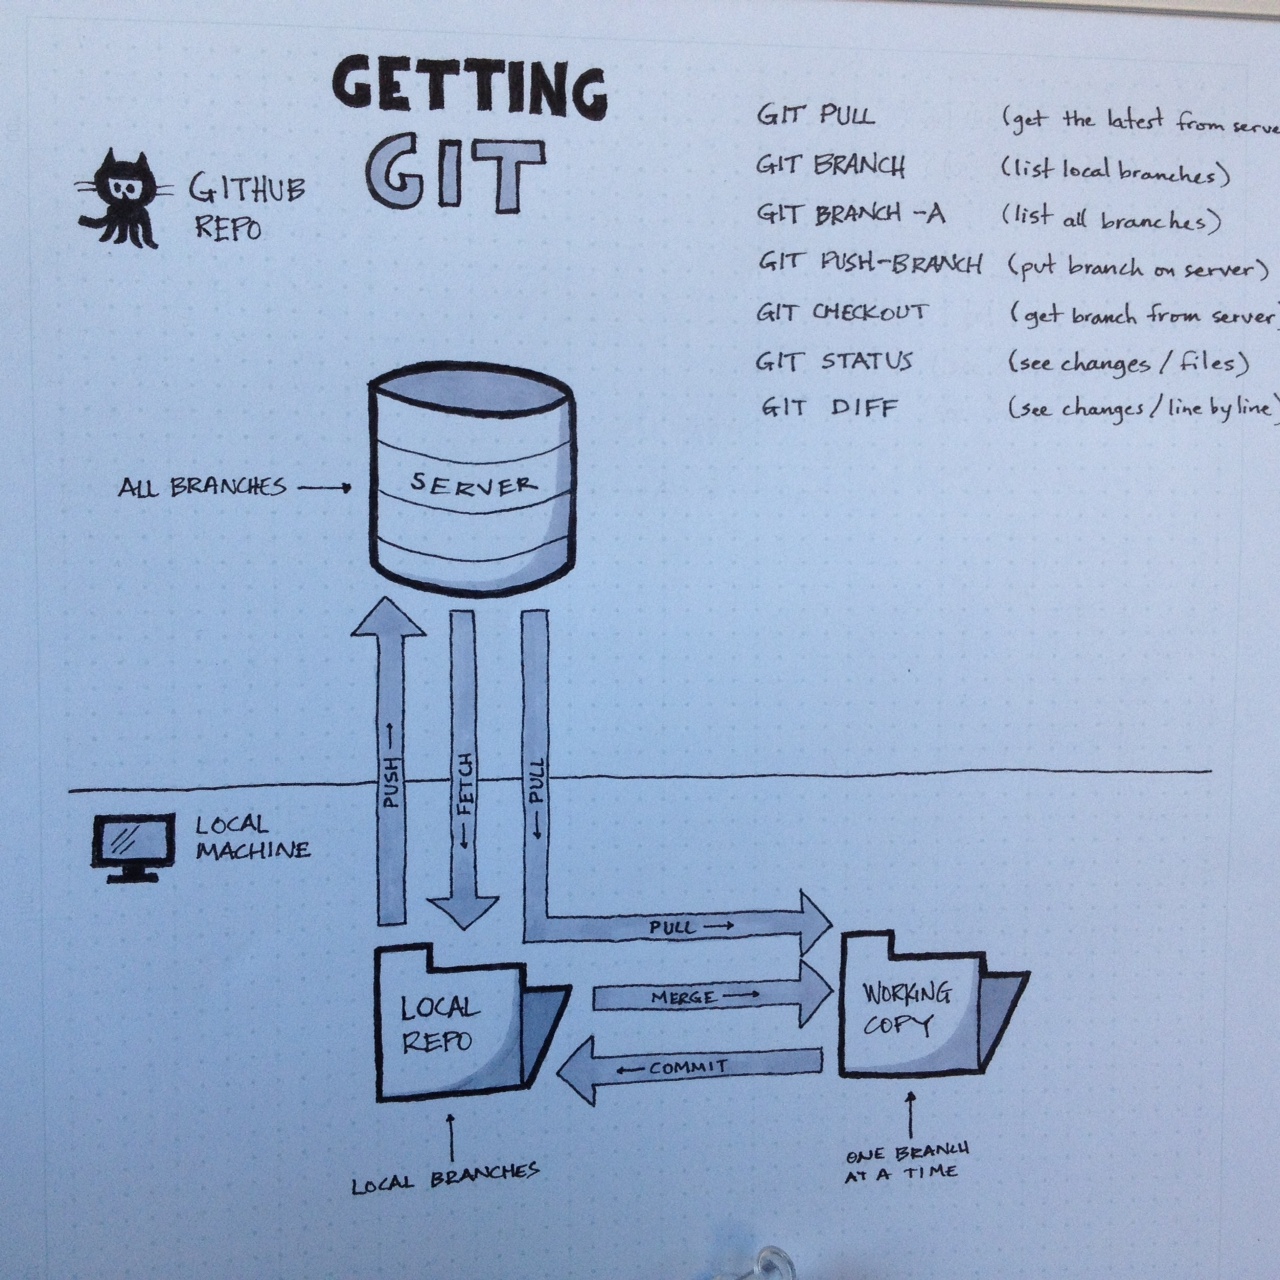 GETTING
GIT
GITHUB
REPO
GIT PULL (get the latest from serve
GIT BRANCH (list local branches)
GIT BRANCH -A (list all branches)
GIT PUSH-BRANCH (put branch on server)
GIT CHECKOUT (get branch from server)
GIT STATUS (see changes / files)
GIT DIFF (see changes / line by line)
ALL BRANCHES →
SERVER
PUSH →
← FETCH
← PULL
LOCAL
MACHINE
PULL →
MERGE →
← COMMIT
LOCAL
REPO
WORKING
COPY
LOCAL BRANCHES
ONE BRANCH
AT A TIME